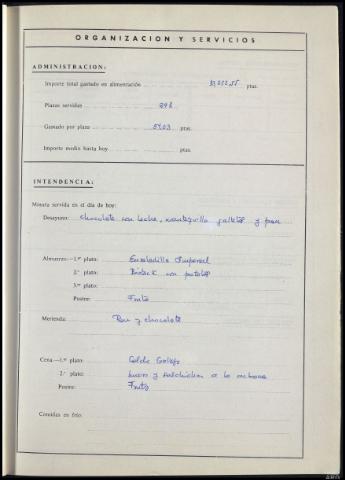 ORGANIZACION Y SERVICIOS
ADMINISTRACION:
Importe total gastado en alimentación ptas.
Plazas servidas 298
Gastado por plaza 54,03 ptas.
Importe medio hasta hoy ptas.
INTENDENCIA:
Minuta servida en el día de hoy:
Desayuno: chocolate con leche, mantequilla galletas y pan
Almuerzo.—1.er plato: Ensaladilla Imperial
2.º plato: Bisteck con patatas
3.er plato:
Postre: Fruta
Merienda: Pan y chocolate
Cena.—1.er plato: Caldo Gallego
2.º plato: huevos y salchichas a la
Postre: Fruta
Comidas en frío: